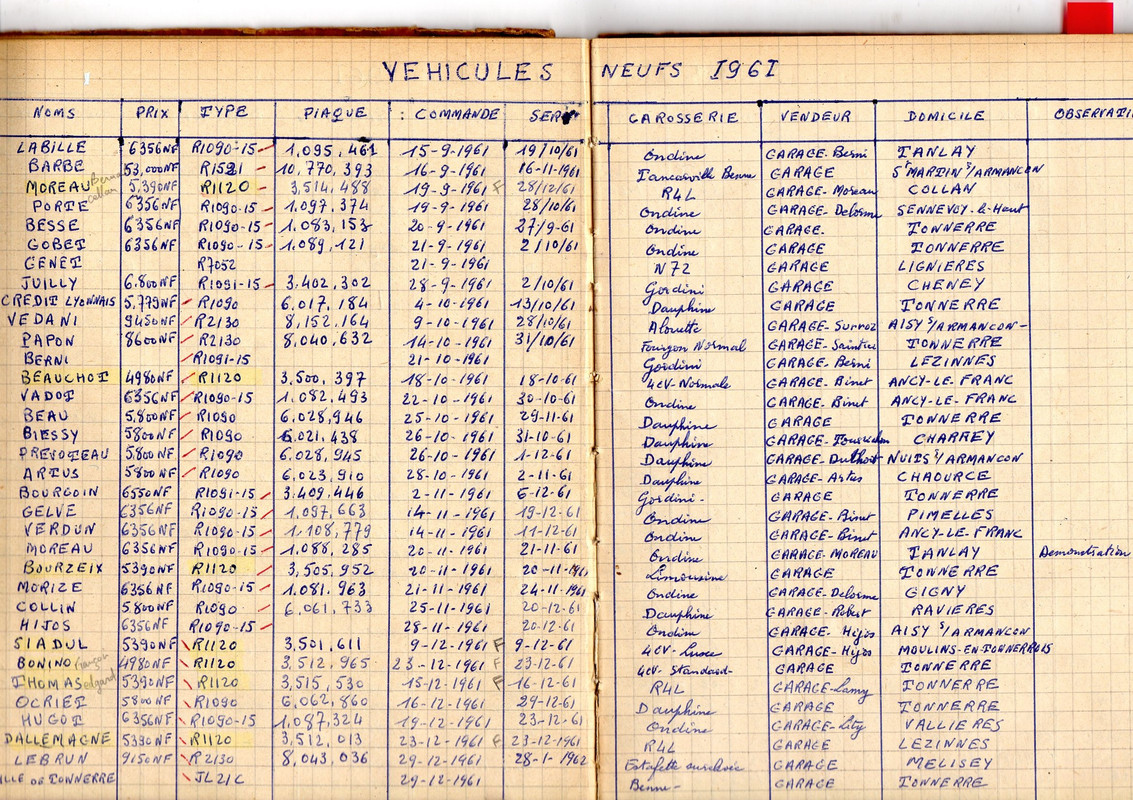 VEHICULES NEUFS 1961
NOMS PRIX TYPE PLAQUE : COMMANDE SERV CAROSSERIE VENDEUR DOMICILE OBSERVATI
LABILLE 6356NF R1090-15 1,095,461 15-9-1961 19/10/61 Ondine GARAGE-Berni TANLAY
BARBE 53,000NF R1521 10,770,393 16-9-1961 16-11-1961 Tancarville Benne GARAGE St MARTIN S/ARMANCON
MOREAU Collan 5,390NF R1120 3,514,488 19-9-1961 F 28/12/61 R4L GARAGE-Moreau COLLAN
PORTE 6356NF R1090-15 1.097,374 19-9-1961 28/10/61 Ondine GARAGE-Delorme SENNEVOY-le-Haut
BESSE 6356NF R1090-15 1.083,153 20-9-1961 27/9-61 Ondine GARAGE. TONNERRE
GOBET 6356NF R1090-15 1,089,121 21-9-1961 2/10/61 Ondine GARAGE TONNERRE
GENET R7052 21-9-1961 N72 GARAGE LIGNIERES
JUILLY 6.800NF R1091-15 3.402,302 28-9-1961 2/10/61 Gordini GARAGE CHENEY
CREDIT LYONNAIS 5.779NF R1090 6.017,184 4-10-1961 13/10/61 Dauphine GARAGE TONNERRE
VEDANI 9450NF R2130 8,152,164 9-10-1961 28/10/61 Alouette GARAGE-Surroz AISY S/ARMANCON-
PAPON 8600NF R2130 8,040,632 14-10-1961 31/10/61 Fourgon Normal GARAGE- TONNERRE
BERNI R1091-15 21-10-1961 Gordini GARAGE-Berni LEZINNES
BEAUCHOT 4980NF R1120 3,500,397 18-10-1961 18-10-61 4CV-Normale GARAGE-Binet ANCY-LE-FRANC
VADOT 6356NF R1090-15 1.082,493 22-10-1961 30-10-61 Ondine GARAGE-Binet ANCY-LE-FRANC
BEAU 5,800NF R1090 6,028,946 25-10-1961 29-11-61 Dauphine GARAGE TONNERRE
BIESSY 5800NF R1090 6.021,438 26-10-1961 31-10-61 Dauphine GARAGE- CHARREY
PREVOTEAU 5800NF R1090 6.028,945 26-10-1961 1-12-61 Dauphine GARAGE- NUITS S/ARMANCON
ARTUS 5800NF R1090 6,023,910 28-10-1961 2-11-61 Dauphine GARAGE-Artus CHAOURCE
BOURGOIN 6550NF R1091-15 3.409.446 2-11-1961 6-12-61 Gordini- GARAGE TONNERRE
GELVE 6356NF R1090-15 1,097,663 14-11-1961 19-12-61 Ondine GARAGE-Binet PIMELLES
VERDUN 6356NF R1090-15 1.108,779 14-11-1961 11-12-61 Ondine GARAGE-Binet ANCY-LE-FRANC
MOREAU 6356NF R1090-15 1.088,285 20-11-1961 21-11-61 Ondine GARAGE-MOREAU TANLAY Demonstration
BOURZEIX 5390NF R1120 3,505,952 20-11-1961 20-11-1961 Limousine GARAGE TONNERRE
MORIZE 6356NF R1090-15 1.081,963 21-11-1961 24-11-1961 Ondine GARAGE-Delorme GIGNY
COLLIN 5800NF R1090 6,061,733 25-11-1961 20-12-61 Dauphine GARAGE-Robert RAVIERES
HIJOS 6356NF R1090-15 28-11-1961 20-12-61 Ondine GARAGE.Hijos AISY S/ARMANCON
SIADUL 5390NF R1120 3,501,611 9-12-1961 F 9-12-61 4CV-Luxe GARAGE-Hijos MOULINS-EN-TONNERROIS
BONINO 4980NF R1120 3,512,965 23-12-1961 F 23-12-61 4CV-Standard- GARAGE TONNERRE
THOMAS edgard 5390NF R1120 3,515,530 15-12-1961 F 16-12-61 R4L GARAGE-Lamy TONNERRE
OCRIET 5800NF R1090 6,062,860 16-12-1961 29-12-61 Dauphine GARAGE TONNERRE
HUGOT 6356NF R1090-15 1,087,324 19-12-1961 23-12-61 Ondine GARAGE-Lity VALLIERES
DALLEMAGNE 5390NF R1120 3,512,013 23-12-1961 F 23-12-61 R4L GARAGE LEZINNES
LEBRUN 9150NF R2130 8,043,036 29-12-1961 28-1-1962 Estafette GARAGE MELISEY
ILLE DE TONNERRE JL21C 29-12-1961 Benne- GARAGE TONNERRE